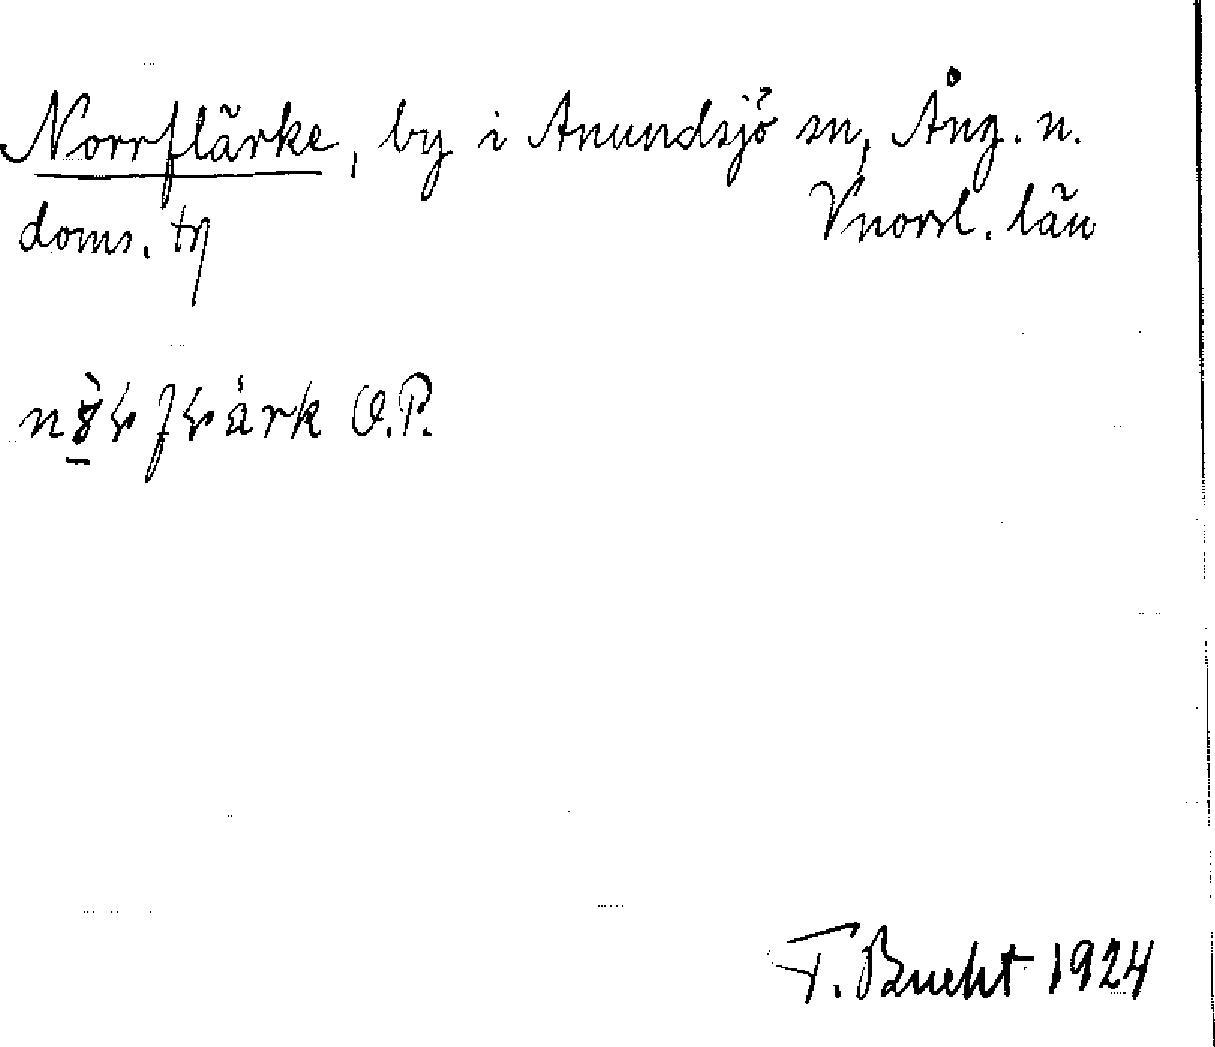 Norrflärke, by i Anundsjö sn, Ång. n.
doms. tg Vnorrl. län
O.P.
T. Bucht 1924